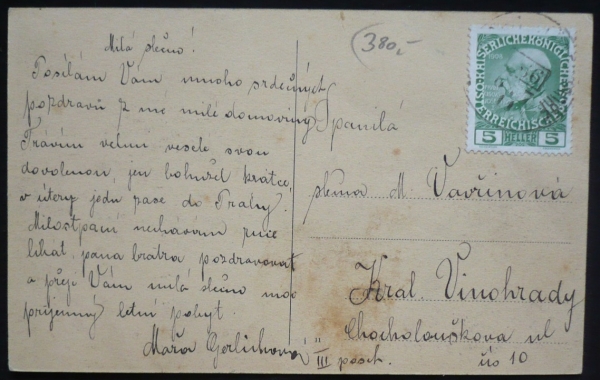 380,-
Milá slečno!
Posílám Vám mnoho srdečných
pozdravů z me milé domoviny
Trávím velmi vesele svou
dovolenou, jen bohužel krátce,
v útery jedu zase do Prahy.
Milostpaní nechávám ruce
líbat, pana bratra pozdravovat
a přeje Vám milá slečno moc
příjemný letní pobyt
Máňa Gerlichová
Spanilá
slečna M. Vavřinová
Král Vinohrady
Chocholouškova ul
čís 10
III posch.
KAISERLICHE KÖNIGLICHE
ÖSTERREICHISCHE
1908
5 HELLER 5